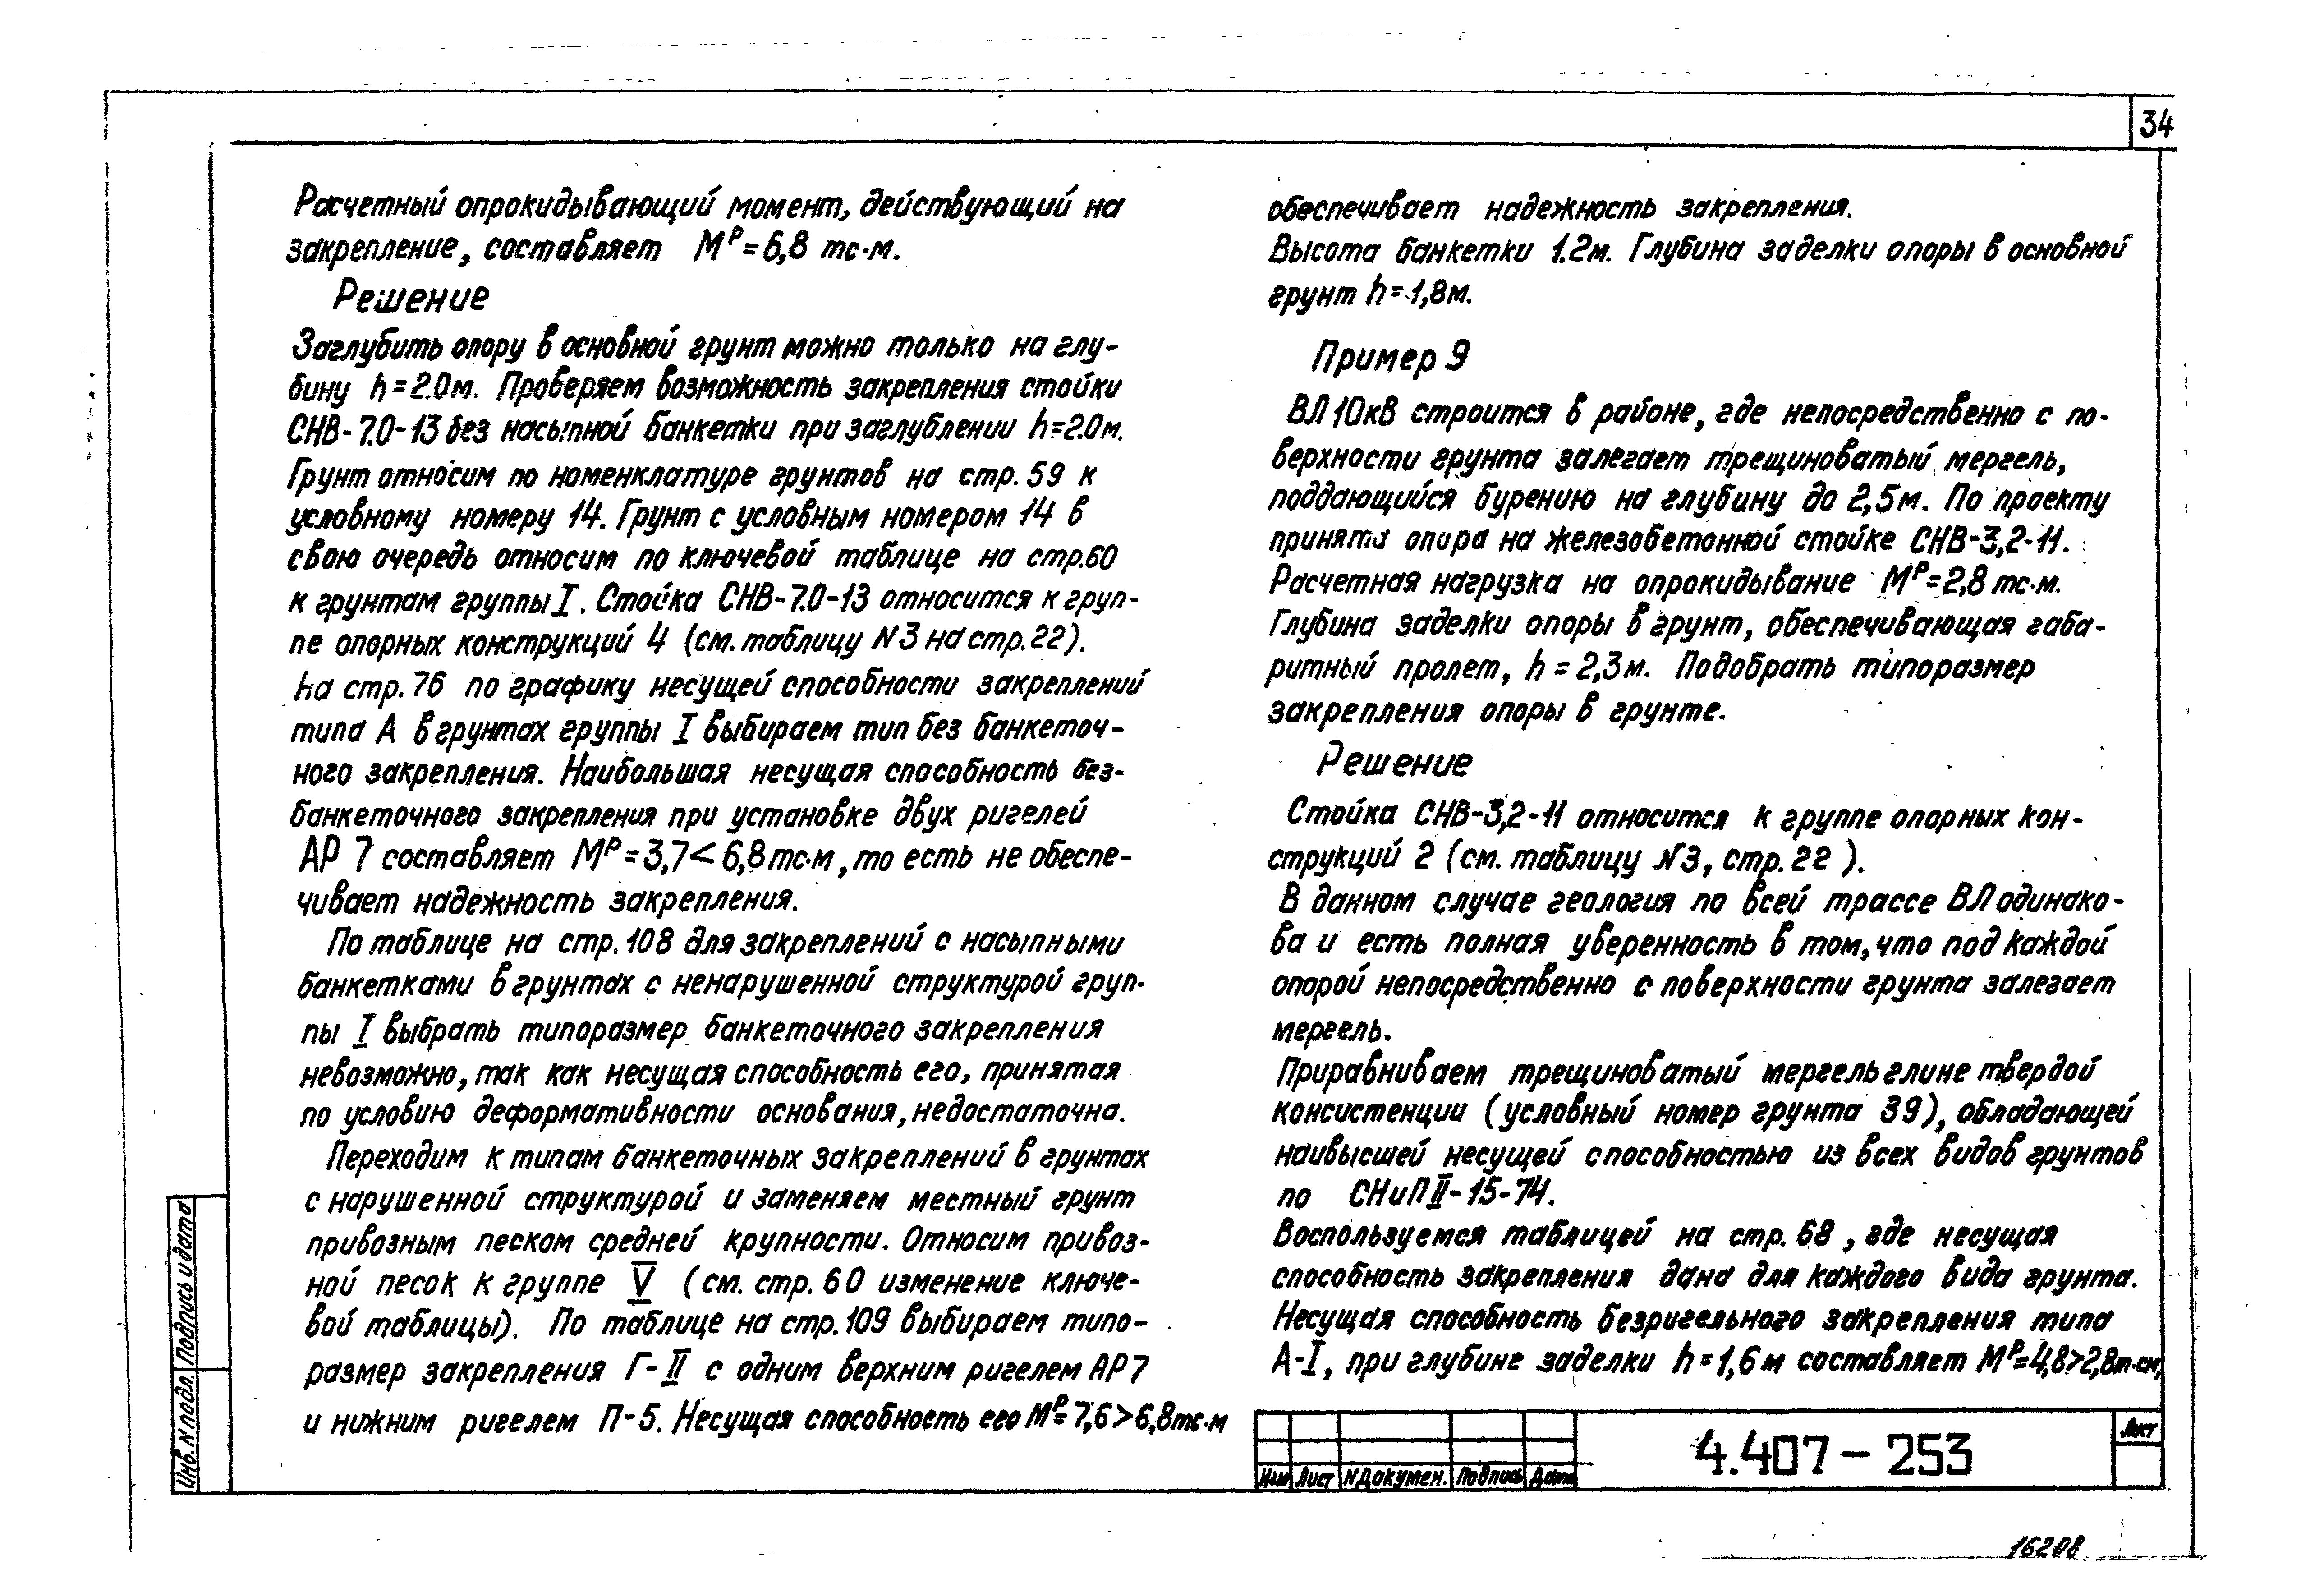 34
Расчетный опрокидывающий момент, действующий на
закрепление, составляет Mᴾ=6,8 тс·м.
Решение
Заглубить опору в основной грунт можно только на глу-
бину h=2.0м. Проверяем возможность закрепления стойки
СНВ-7.0-13 без насыпной банкетки при заглублении h=2.0м.
Грунт относим по номенклатуре грунтов на стр. 59 к
условному номеру 14. Грунт с условным номером 14 в
свою очередь относим по ключевой таблице на стр.60
к грунтам группы I. Стойка СНВ-7.0-13 относится к груп-
пе опорных конструкций 4 (см. таблицу N3 на стр. 22).
На стр. 76 по графику несущей способности закреплений
типа А в грунтах группы I выбираем тип без банкеточ-
ного закрепления. Наибольшая несущая способность без-
банкеточного закрепления при установке двух ригелей
АР 7 составляет Mᴾ=3,7<6,8тс·м, то есть не обеспе-
чивает надежность закрепления.
По таблице на стр. 108 для закреплений с насыпными
банкетками в грунтах с ненарушенной структурой груп-
пы I выбрать типоразмер банкеточного закрепления
невозможно, так как несущая способность его, принятая
по условию деформативности основания, недостаточна.
Переходим к типам банкеточных закреплений в грунтах
с нарушенной структурой и заменяем местный грунт
привозным песком средней крупности. Относим привоз-
ной песок к группе V (см. стр. 60 изменение ключе-
вой таблицы). По таблице на стр. 109 выбираем типо-
размер закрепления Г-II с одним верхним ригелем АР7
и нижним ригелем П-5. Несущая способность его Mᴾ=7,6>6,8тс·м
обеспечивает надежность закрепления.
Высота банкетки 1.2м. Глубина заделки опоры в основной
грунт h=1,8м.
Пример 9
ВЛ 10кВ строится в районе, где непосредственно с по-
верхности грунта залегает трещиноватый мергель,
поддающийся бурению на глубину до 2,5м. По проекту
принята опора на железобетонной стойке СНВ-3,2-11.
Расчетная нагрузка на опрокидывание Mᴾ=2,8 тс·м.
Глубина заделки опоры в грунт, обеспечивающая габа-
ритный пролет, h=2,3м. Подобрать типоразмер
закрепления опоры в грунте.
Решение
Стойка СНВ-3,2-11 относится к группе опорных кон-
струкций 2 (см. таблицу N3, стр. 22 ).
В данном случае геология по всей трассе ВЛ одинако-
ва и есть полная уверенность в том, что под каждой
опорой непосредственно с поверхности грунта залегает
мергель.
Приравниваем трещиноватый мергель глине твердой
консистенции (условный номер грунта 39), обладающей
наивысшей несущей способностью из всех видов грунтов
по СНиП II-15-74.
Воспользуемся таблицей на стр. 68, где несущая
способность закрепления дана для каждого вида грунта.
Несущая способность безригельного закрепления типа
А-I, при глубине заделки h=1,6м составляет Mᴾ=4,8>2,8т·см,
Инв. N подл. Подпись и дата
Изм Лист N Докумен. Подпись Дата
4.407-253
Лист
16208